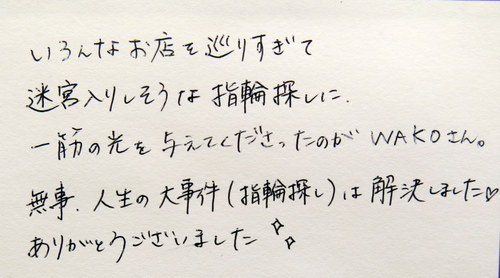 いろんなお店を巡りすぎて
迷宮入りしそうな指輪探しに、
一筋の光を与えてくださったのがWAKOさん。
無事、人生の大事件(指輪探し)は解決しました♡
ありがとうございました✧✧